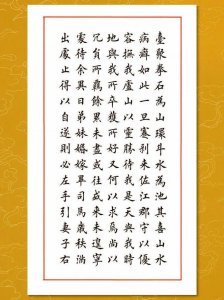 臺聚拳石為山環斗水為池其喜山水
病癖如此一旦蹇剝来佐江郡守以優
容撫我廬山以靈勝待我是天與我時
地與我所卒獲所好又何以求焉尚以
冗員所羈餘累未盡或往或来未遑寧
處待余異日弟妹婚嫁畢司馬歲秩滿
出處止得以自遂則必左手引妻子右